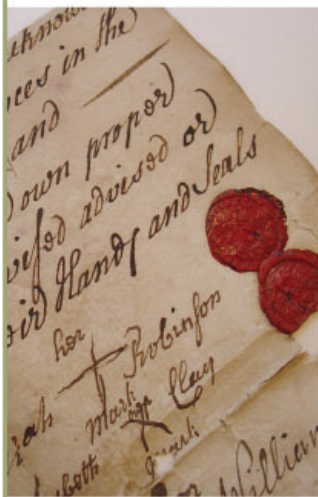 know
ces in the
and
own proper
vised advised or
eir Hands and Seals
her
rah Robinson
mark
Clay
abeth mark
William